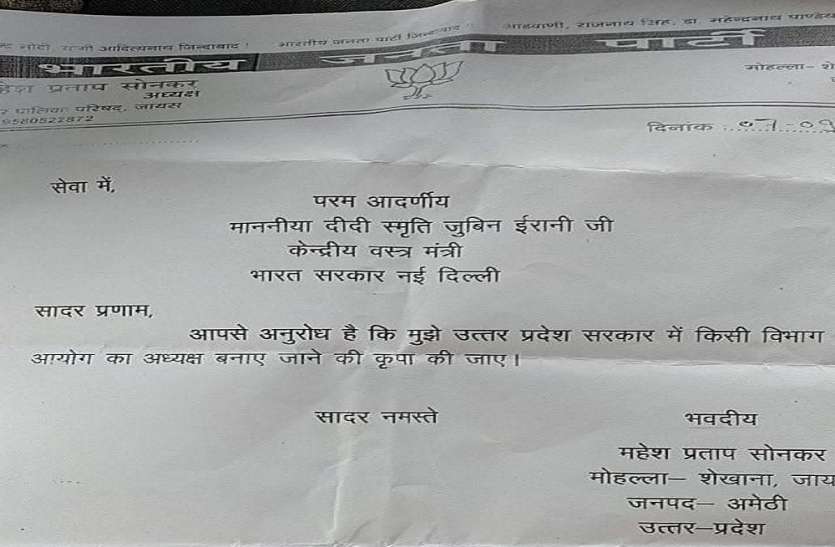 मोदी, योगी आदित्यनाथ जिन्दाबाद ! भारतीय जनता पार्टी जिन्दाबाद ! आडवाणी, राजनाथ सिंह, डा. महेन्द्रनाथ पाण्डे
भारतीय जनता पार्टी
हेश प्रताप सोनकर
अध्यक्ष
पालिका परिषद, जायस
9580522872
मोहल्ला– शे
दिनांक
सेवा में,
परम आदर्णीय
माननीया दीदी स्मृति जुबिन ईरानी जी
केन्द्रीय वस्त्र मंत्री
भारत सरकार नई दिल्ली
सादर प्रणाम,
आपसे अनुरोध है कि मुझे उत्तर प्रदेश सरकार में किसी विभाग
आयोग का अध्यक्ष बनाए जाने की कृपा की जाए।
सादर नमस्ते
भवदीय
महेश प्रताप सोनकर
मोहल्ला– शेखाना, जाय
जनपद– अमेठी
उत्तर–प्रदेश